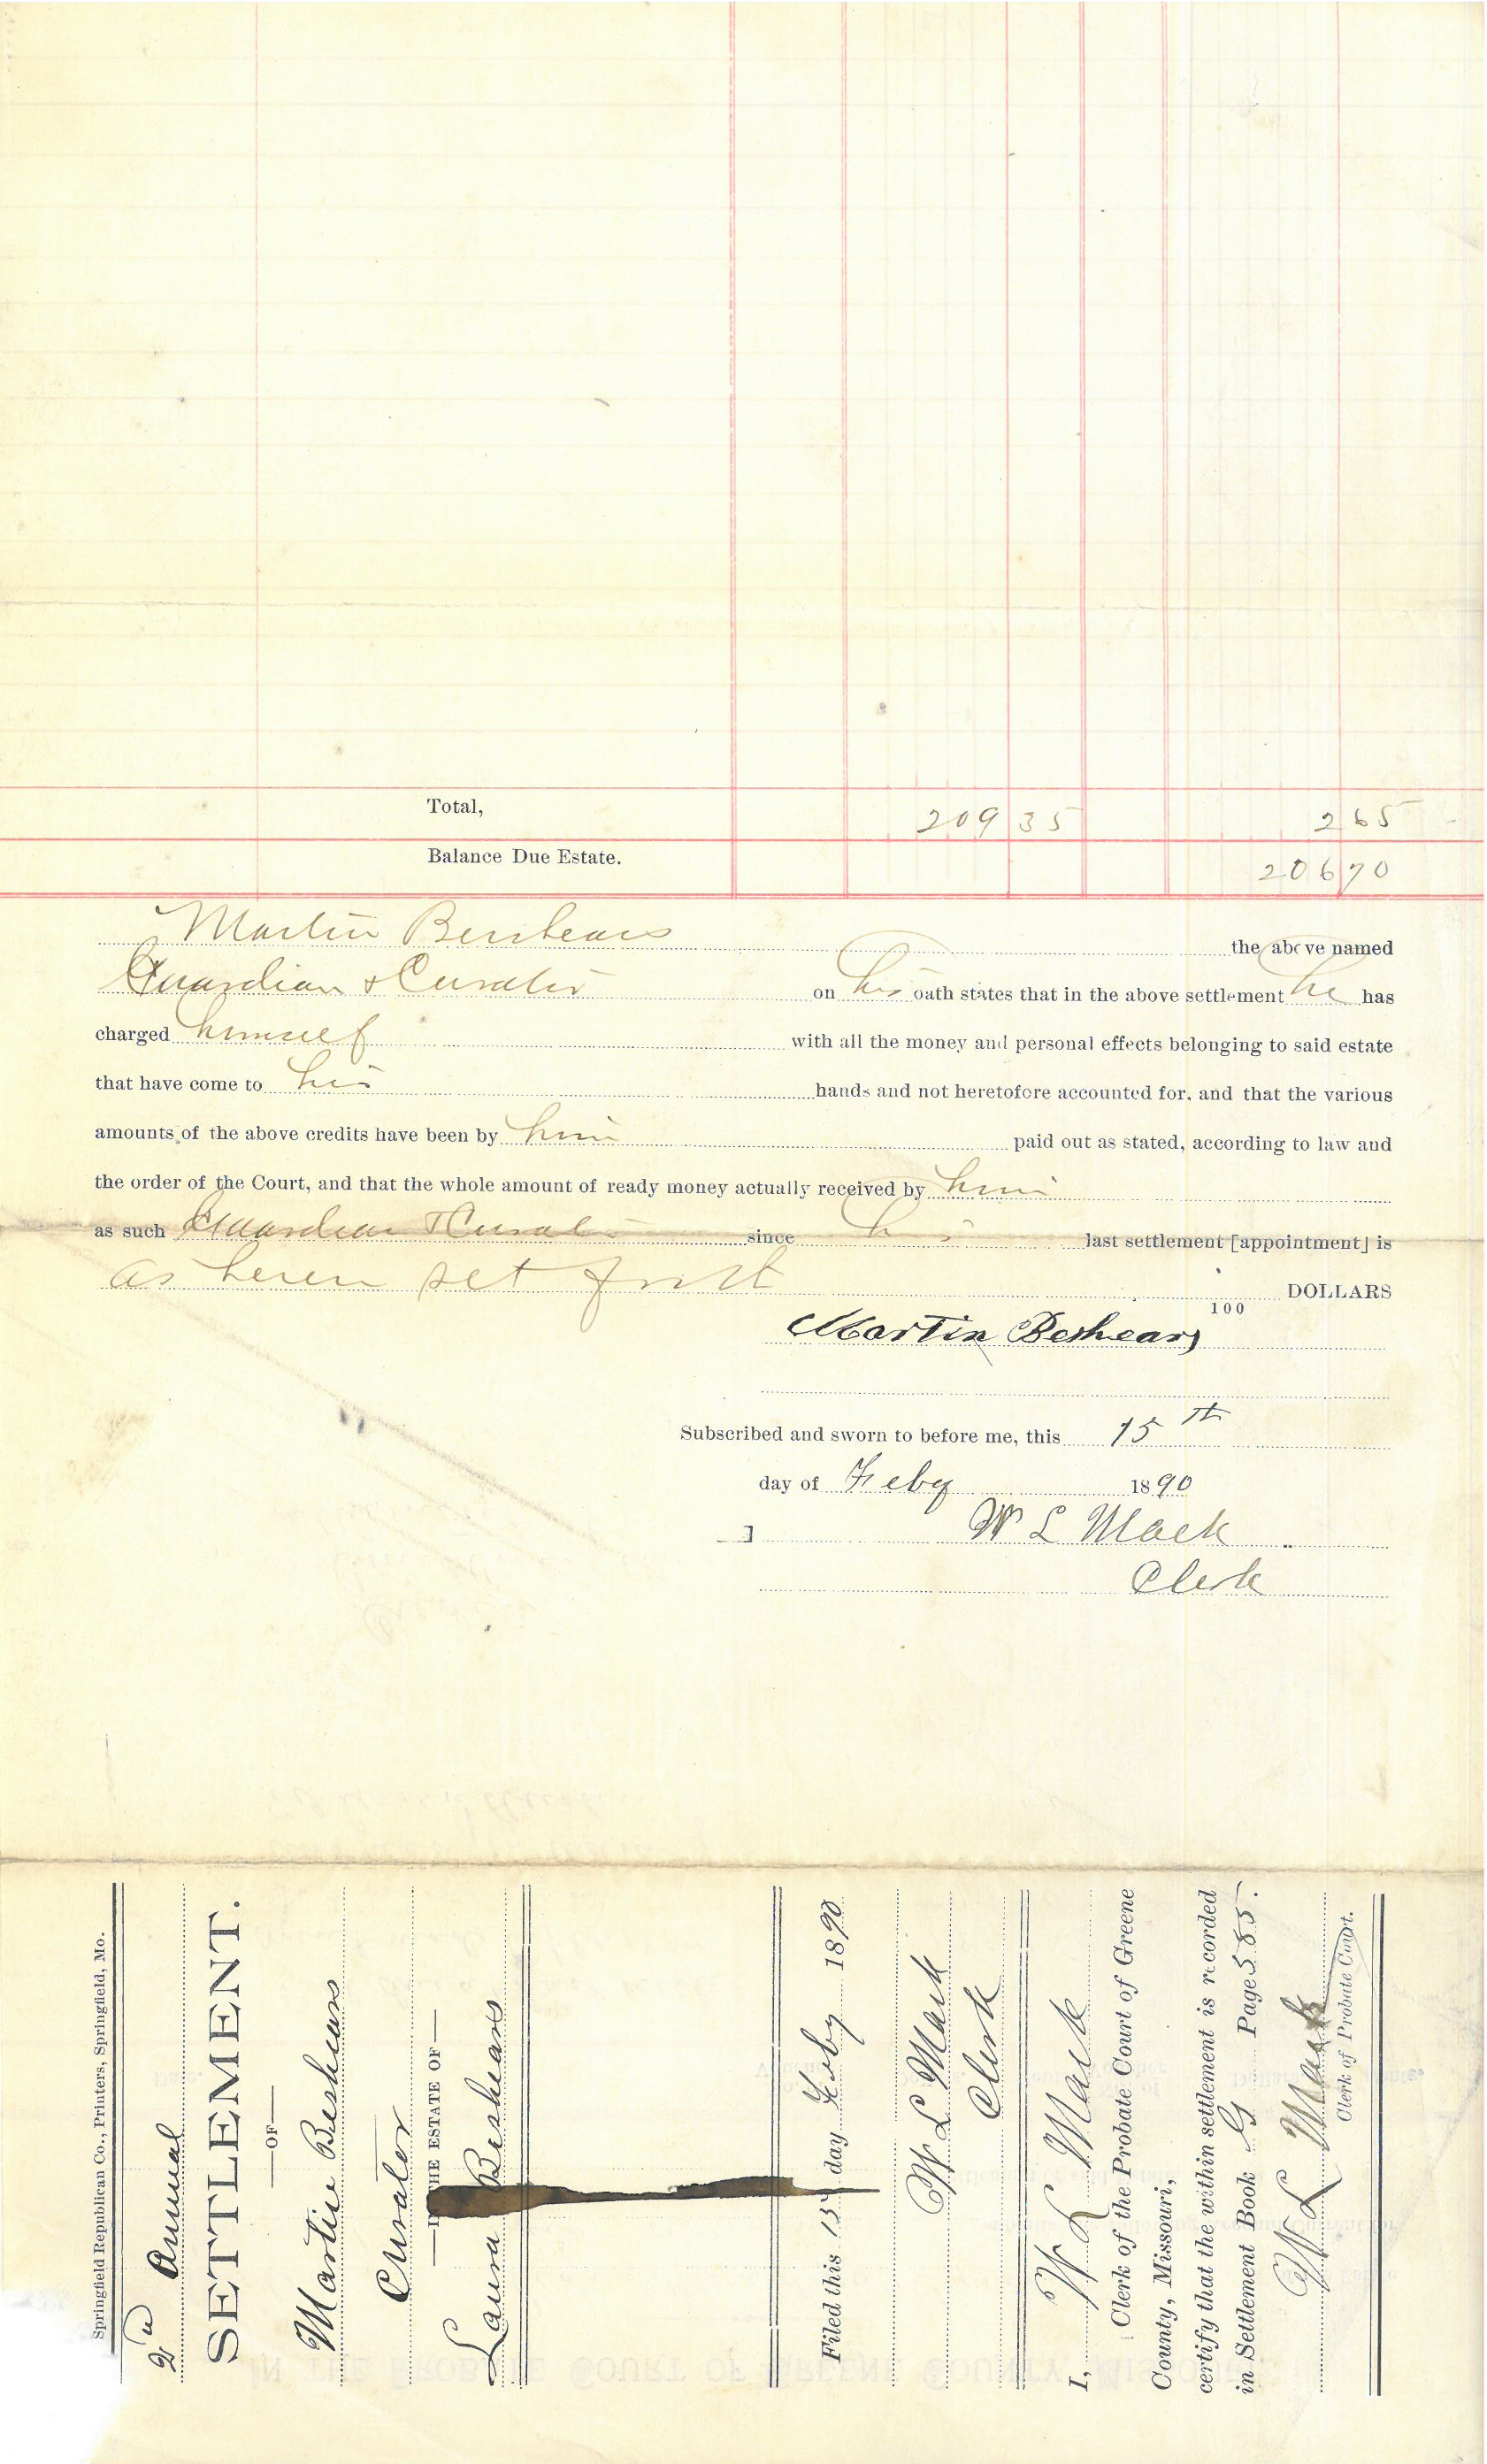 Total, 209 35 2 65
Balance Due Estate. 206 70
Martin Beshears the above named
Guardian & Curator on his oath states that in the above settlement he has
charged himself with all the money and personal effects belonging to said estate
that have come to his hands and not heretofore accounted for, and that the various
amounts of the above credits have been by him paid out as stated, according to law and
the order of the Court, and that the whole amount of ready money actually received by him
as such Guardian & Curator since his last settlement [appointment] is
as herein set forth DOLLARS
100
Martin Beshears
Subscribed and sworn to before me, this 15th
day of Feby 1890
W L Mack
Clerk
Springfield Republican Co., Printers, Springfield, Mo.
2nd Annual
SETTLEMENT.
—OF—
Martin Beshears
Curator
—IN THE ESTATE OF—
Laura Beshears
Filed this 15 day Feby 1890
W L Mack
Clerk
I, W L Mack
Clerk of the Probate Court of Greene
County, Missouri,
certify that the within settlement is recorded
in Settlement Book G Page 585.
W L Mack
Clerk of Probate Court.